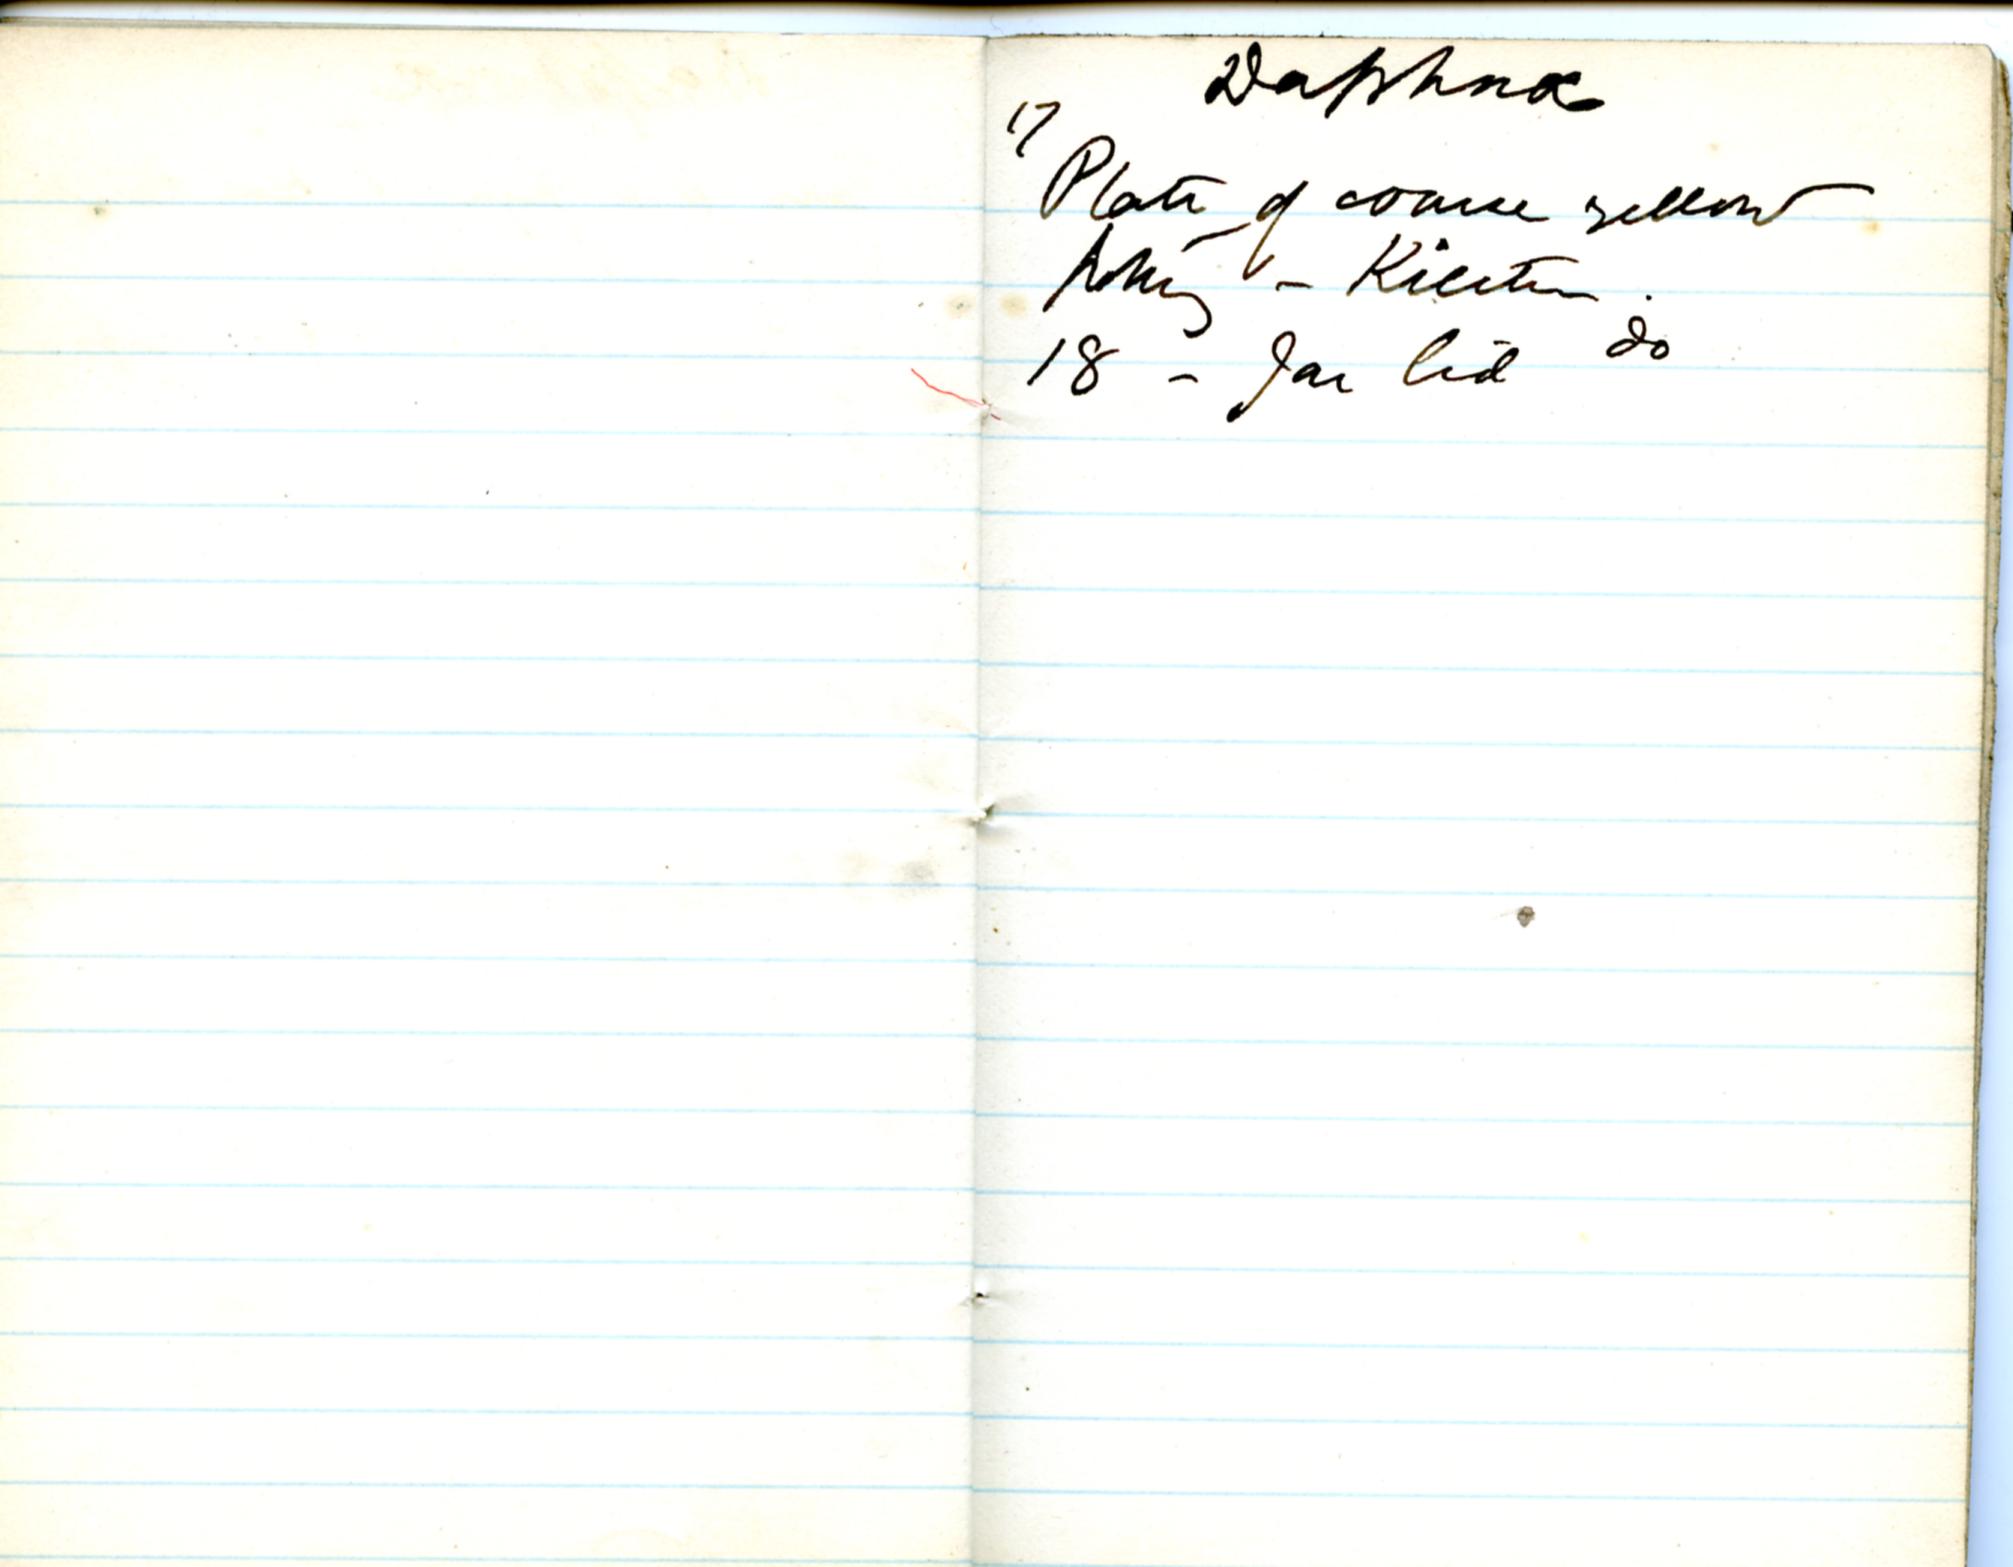 Daphnae
17
Plate of coarse yellow
pottery –
18 – Jar lid do